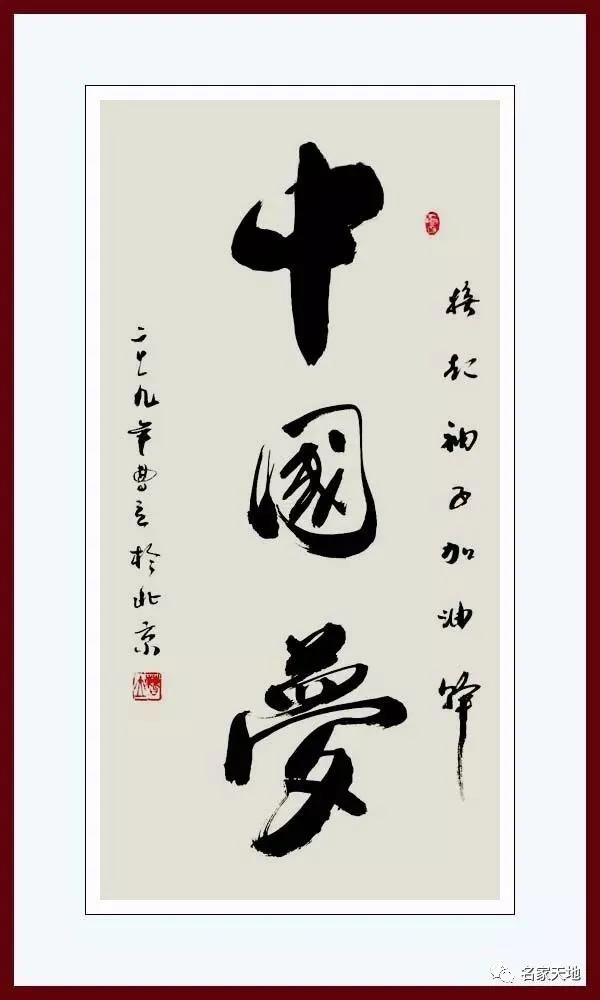 擼起袖子加油幹
中國夢
二〇一九年曹立於北京
名家天地